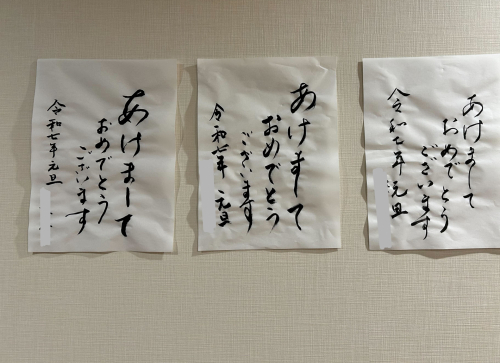 あけまして
おめでとう
ございます
令和七年元旦
あけまして
おめでとう
ございます
令和七年 元旦
あけまして
おめでとう
ございます
令和七年 元旦